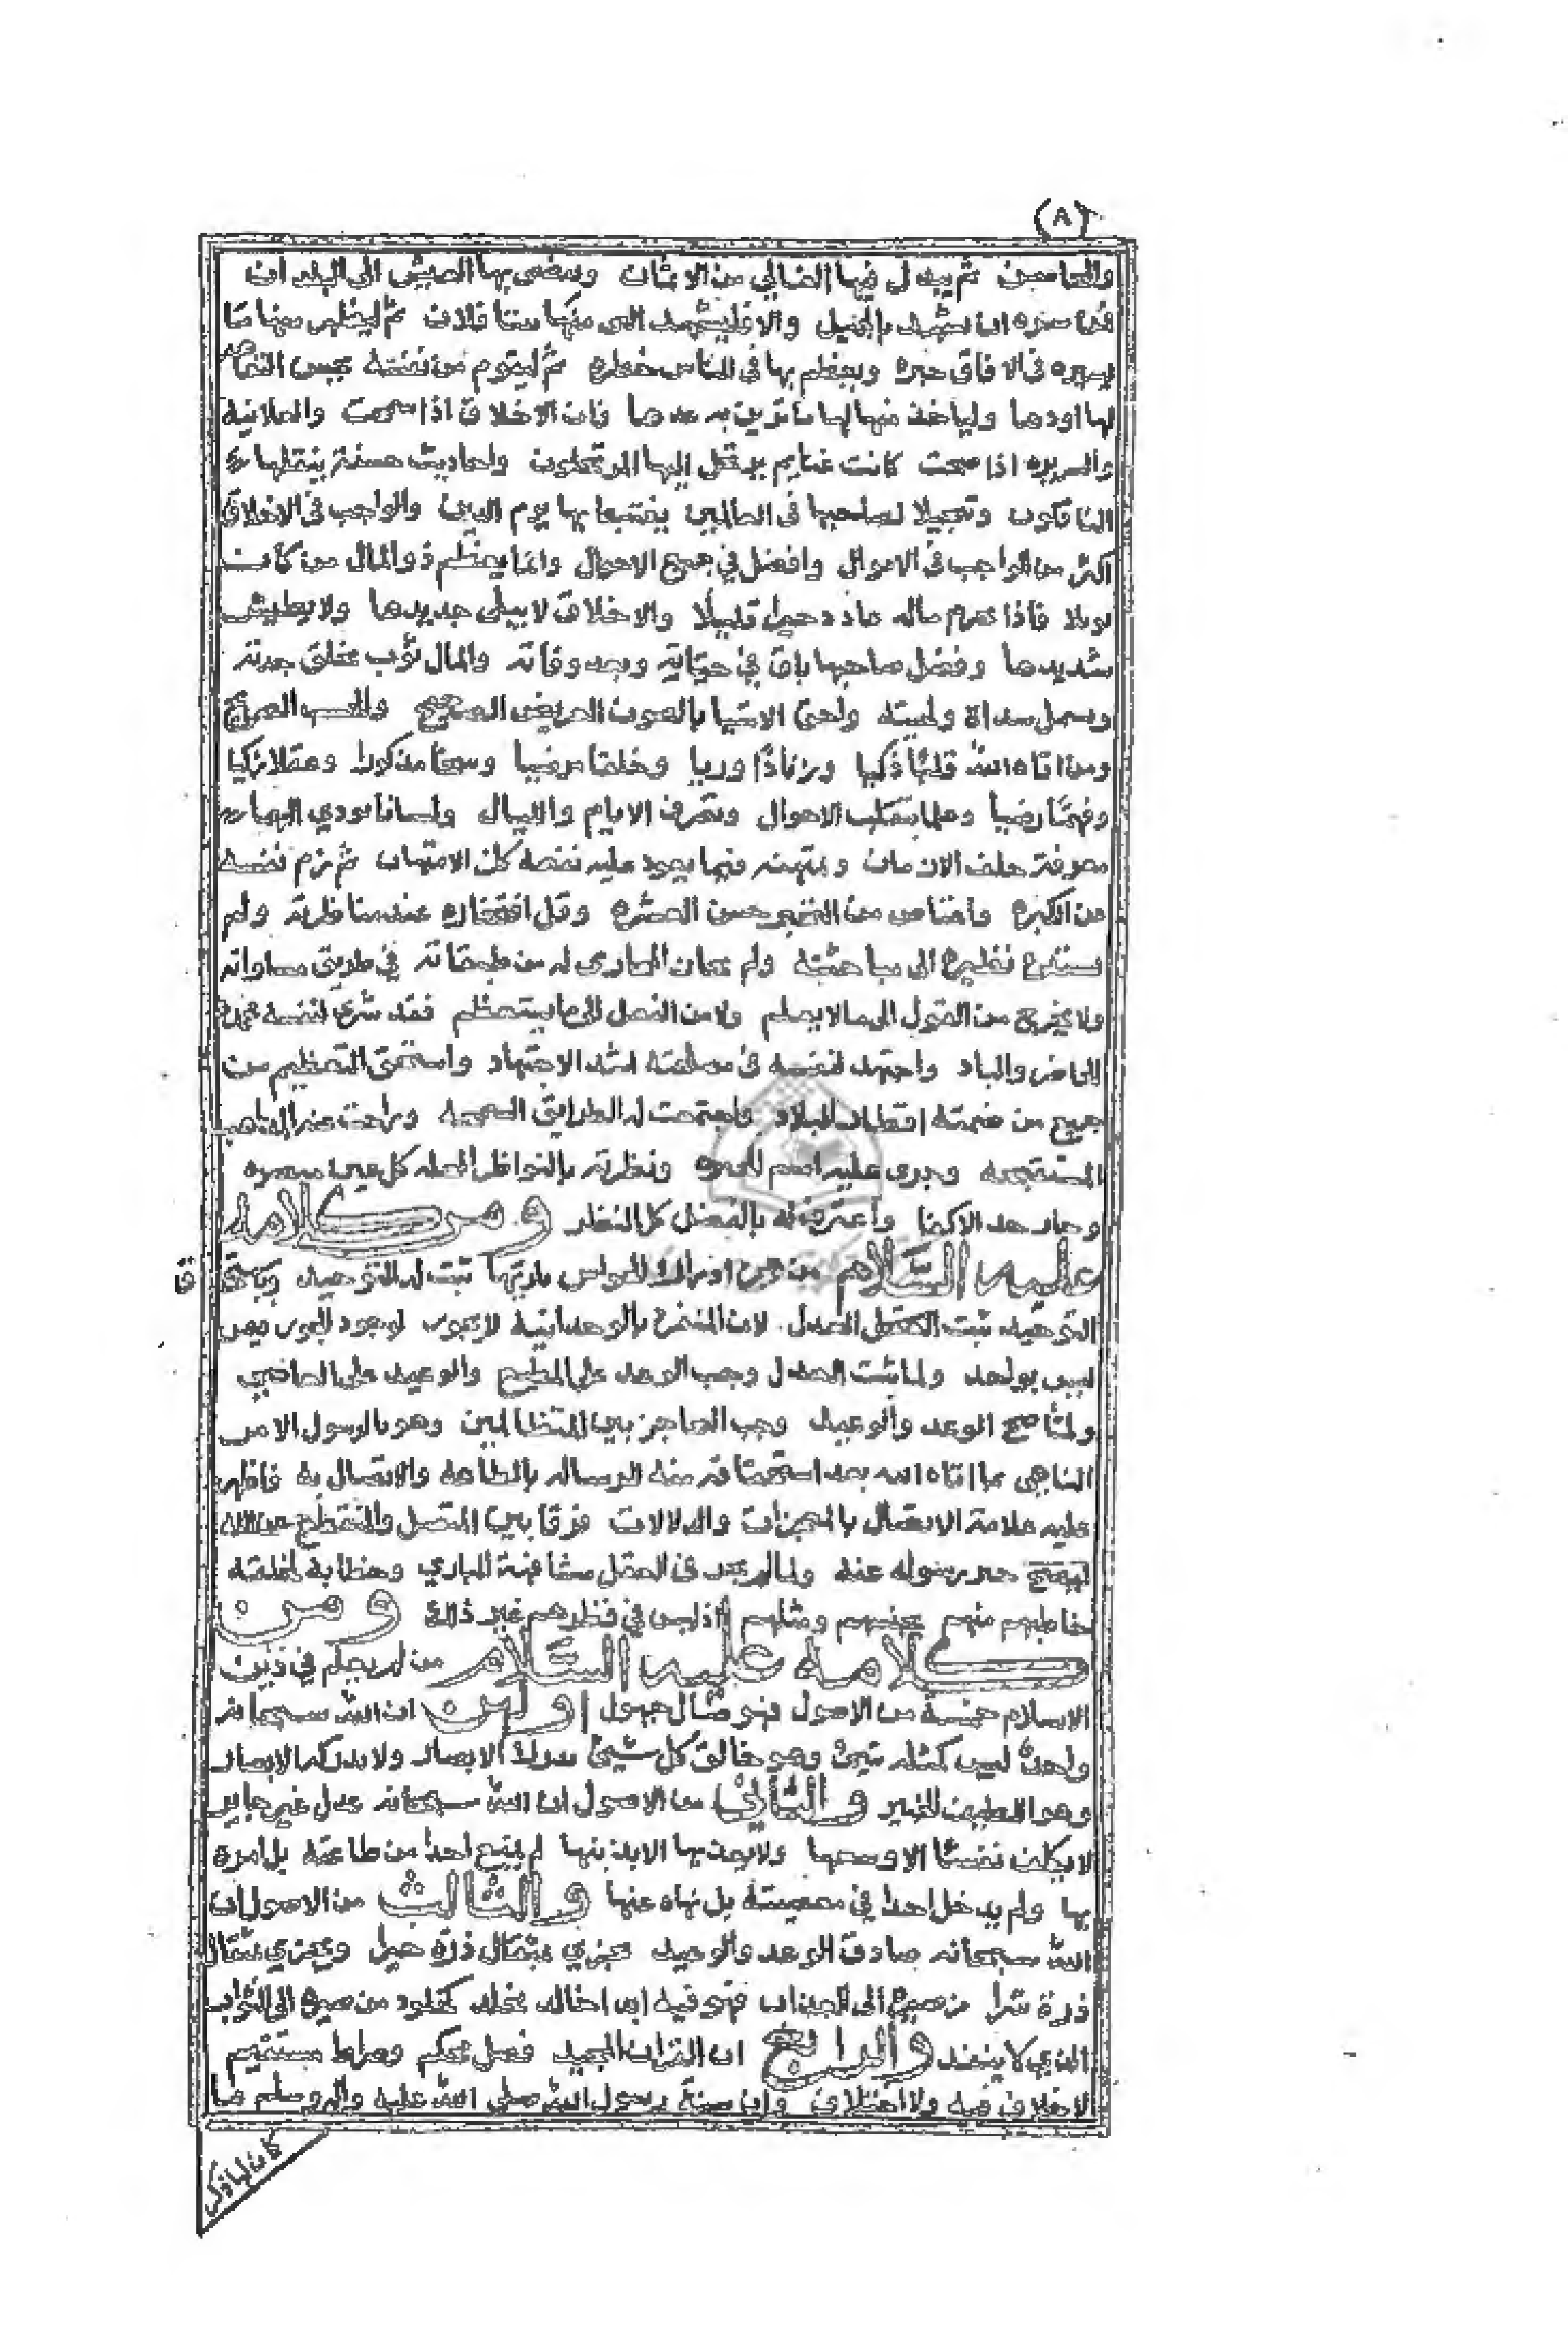 (٨)
والمحاسن ثم يبدل فيها الغالي من الاثمان الى البلدان
فمن سره ان يشهد بالجميل والا فليشهد ثم ليظهر منها ما
يسيره فى الافاق خبره ويعظم بها فى الناس خطره ثم ليقوم من نفسه
لها اودها ولياخذ منها لها ما تزين به فان الاخلاق اذا سمحت والعلانية
والسريره اذا صحت كانت غنايم يرتحل اليها المرتحلون واحاديث حسنة ينقلها
الناقلون وتجيلا لصاحبها فى العالمين يغتبط بها يوم الدين والواجب فى الاخلاق
اكثر من الواجب فى الاموال وافضل في جميع الاحوال وانما يعظم ذو المال من كانت
فاذا عدم ماله عاد قليلا والاخلاق لا يبلى جديدها ولا يطيش
شديدها وفضل صاحبها باق في حياته وبعد وفاته والمال ثوب تخلق جدته
وسمل سداه ولحمته واحق الاشيا بالصون العريض الصحيح والحسب الصريح
ومن اتاه الله قلبًا ذكيا وزنادًا وريا وخلقا مرضيا وسمعا وعقلا زكيا
وفهمًا رضيا وعلما بتقلب الاحوال وتصرف الايام والليال ولسانا يودي اليها
معرفة الازمان ويمتهنه فيما يعود عليه نفعه كل الامتهان ثم زم نفسه
عن الكبره واعتاض من التجبر حسن العشره وقل افتخاره عند مناظرته ولم
يستفرغ نظيره الى مباحثته ولم المساوى له من طبقاته في طريق مساواته
ولا يخرج من القول الى ما لا يعلم ولا من الفعل الى ما يستعظم فقد شرع لنفسه
الحاضر والباد واجتهد لنفسه فى مصلحته اشد الاجتهاد واستحق التعظيم من
جميع من ضمته اقطار البلاد واتضحت له الطرايق الصحيحه وزاحت عنه المذاهب
المستقبحه وجرى عليه اسم ونظرته بالنواظر كل عين مبصره
وحاز حد الاكفا واعترف له بالفضل كل النظر ومن كلامه
عليه السلام من عن ادراك الحواس ثبت له التوحيد
التوحيد ثبت العدل لان المتفرد بالوحدانية لا يجور لوجود الجور ممن
ليس بواحد ولما ثبت العدل وجب الوعد على المطيع والوعيد على العاصي
ولما صح الوعد والوعيد وجب الحاجز بين المتظالمين وهو الرسول الامر
الناهي بما اتاه الله بعد استحقاقه منه الرساله بالطاعة والاتصال به فاظهر
عليه علامة الاتصال بالمعجزات والدلالات فرقا بين المتصل والمنقطع عن الله
ليصح خبر رسوله عنه ولما لم يجز فى العقل مشافهة الباري وخطابه لخلقه
خاطبهم منهم بجنسهم ومثلهم اذ ليس في فطرهم غير ذالك ومن
كلامه عليه السلام من لم يعلم في دين
الاسلام خمسة من الاصول فهو ضال جهول اولهن ان الله سبحانه
واحدٌ ليس كمثله شيئ وهو خالق كل شيئ يدرك الابصار ولا تدركه الابصار
وهو اللطيف الخبير والثاني من الاصول ان الله سبحانه عدل غير جاير
لا يكلف نفسًا الا وسعها ولا يعذبها الا بذنبها لم يمنع احدا من طاعته بل امره
بها ولم يدخل احدا في معصيته بل نهاه عنها والثالث من الاصول ان
الله سبحانه صادق الوعد والوعيد يجزي بمثقال ذرة خيرا ويجزي بمثقال
ذرة شرا من صيره الى العذاب فهو فيه ابدا خالد مخلد كخلود من صيره الى الثواب
الذي لا ينفد والرابع ان القران المجيد فصل محكم وصراط مستقيم
لا خلاف فيه ولا اختلاف وان سنة رسول الله صلى الله عليه واله وسلم ما
كان لها ذكر